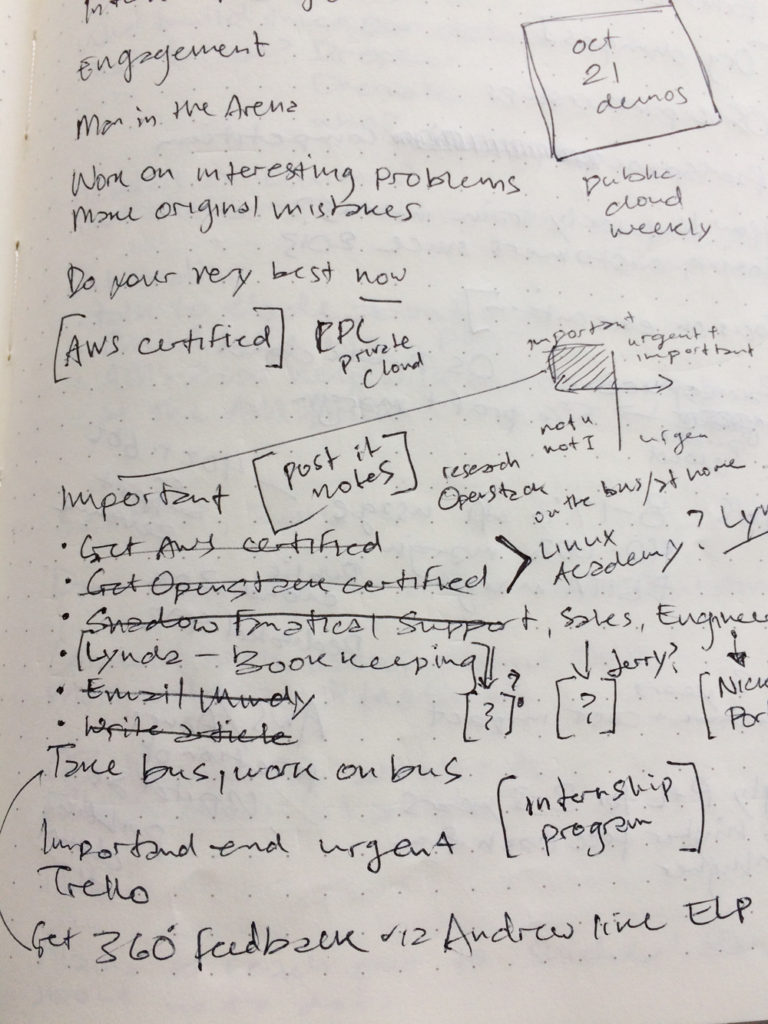 Engagement
oct
21
demos
Man in the Arena
Work on interesting problems
Make original mistakes
public
cloud
weekly
Do your very best now
[AWS certified]
RPC
private
cloud
important
urgent +
important
not u
not I
urgen
[post it
notes]
research
Openstack
on the bus/at home
Important
• Get AWS certified
• Get Openstack certified
> Linux
Academy? Lyn
• Shadow Fanatical Support, Sales, Enginee
• [Lynda - Bookkeeping]
Jerry?
[?]?
[?]
[Nick
Por
• Email Mundy
• Write article
Take bus, work on bus
[internship
program]
Important and urgent
Trello
Get 360° feedback via Andrew like ELP